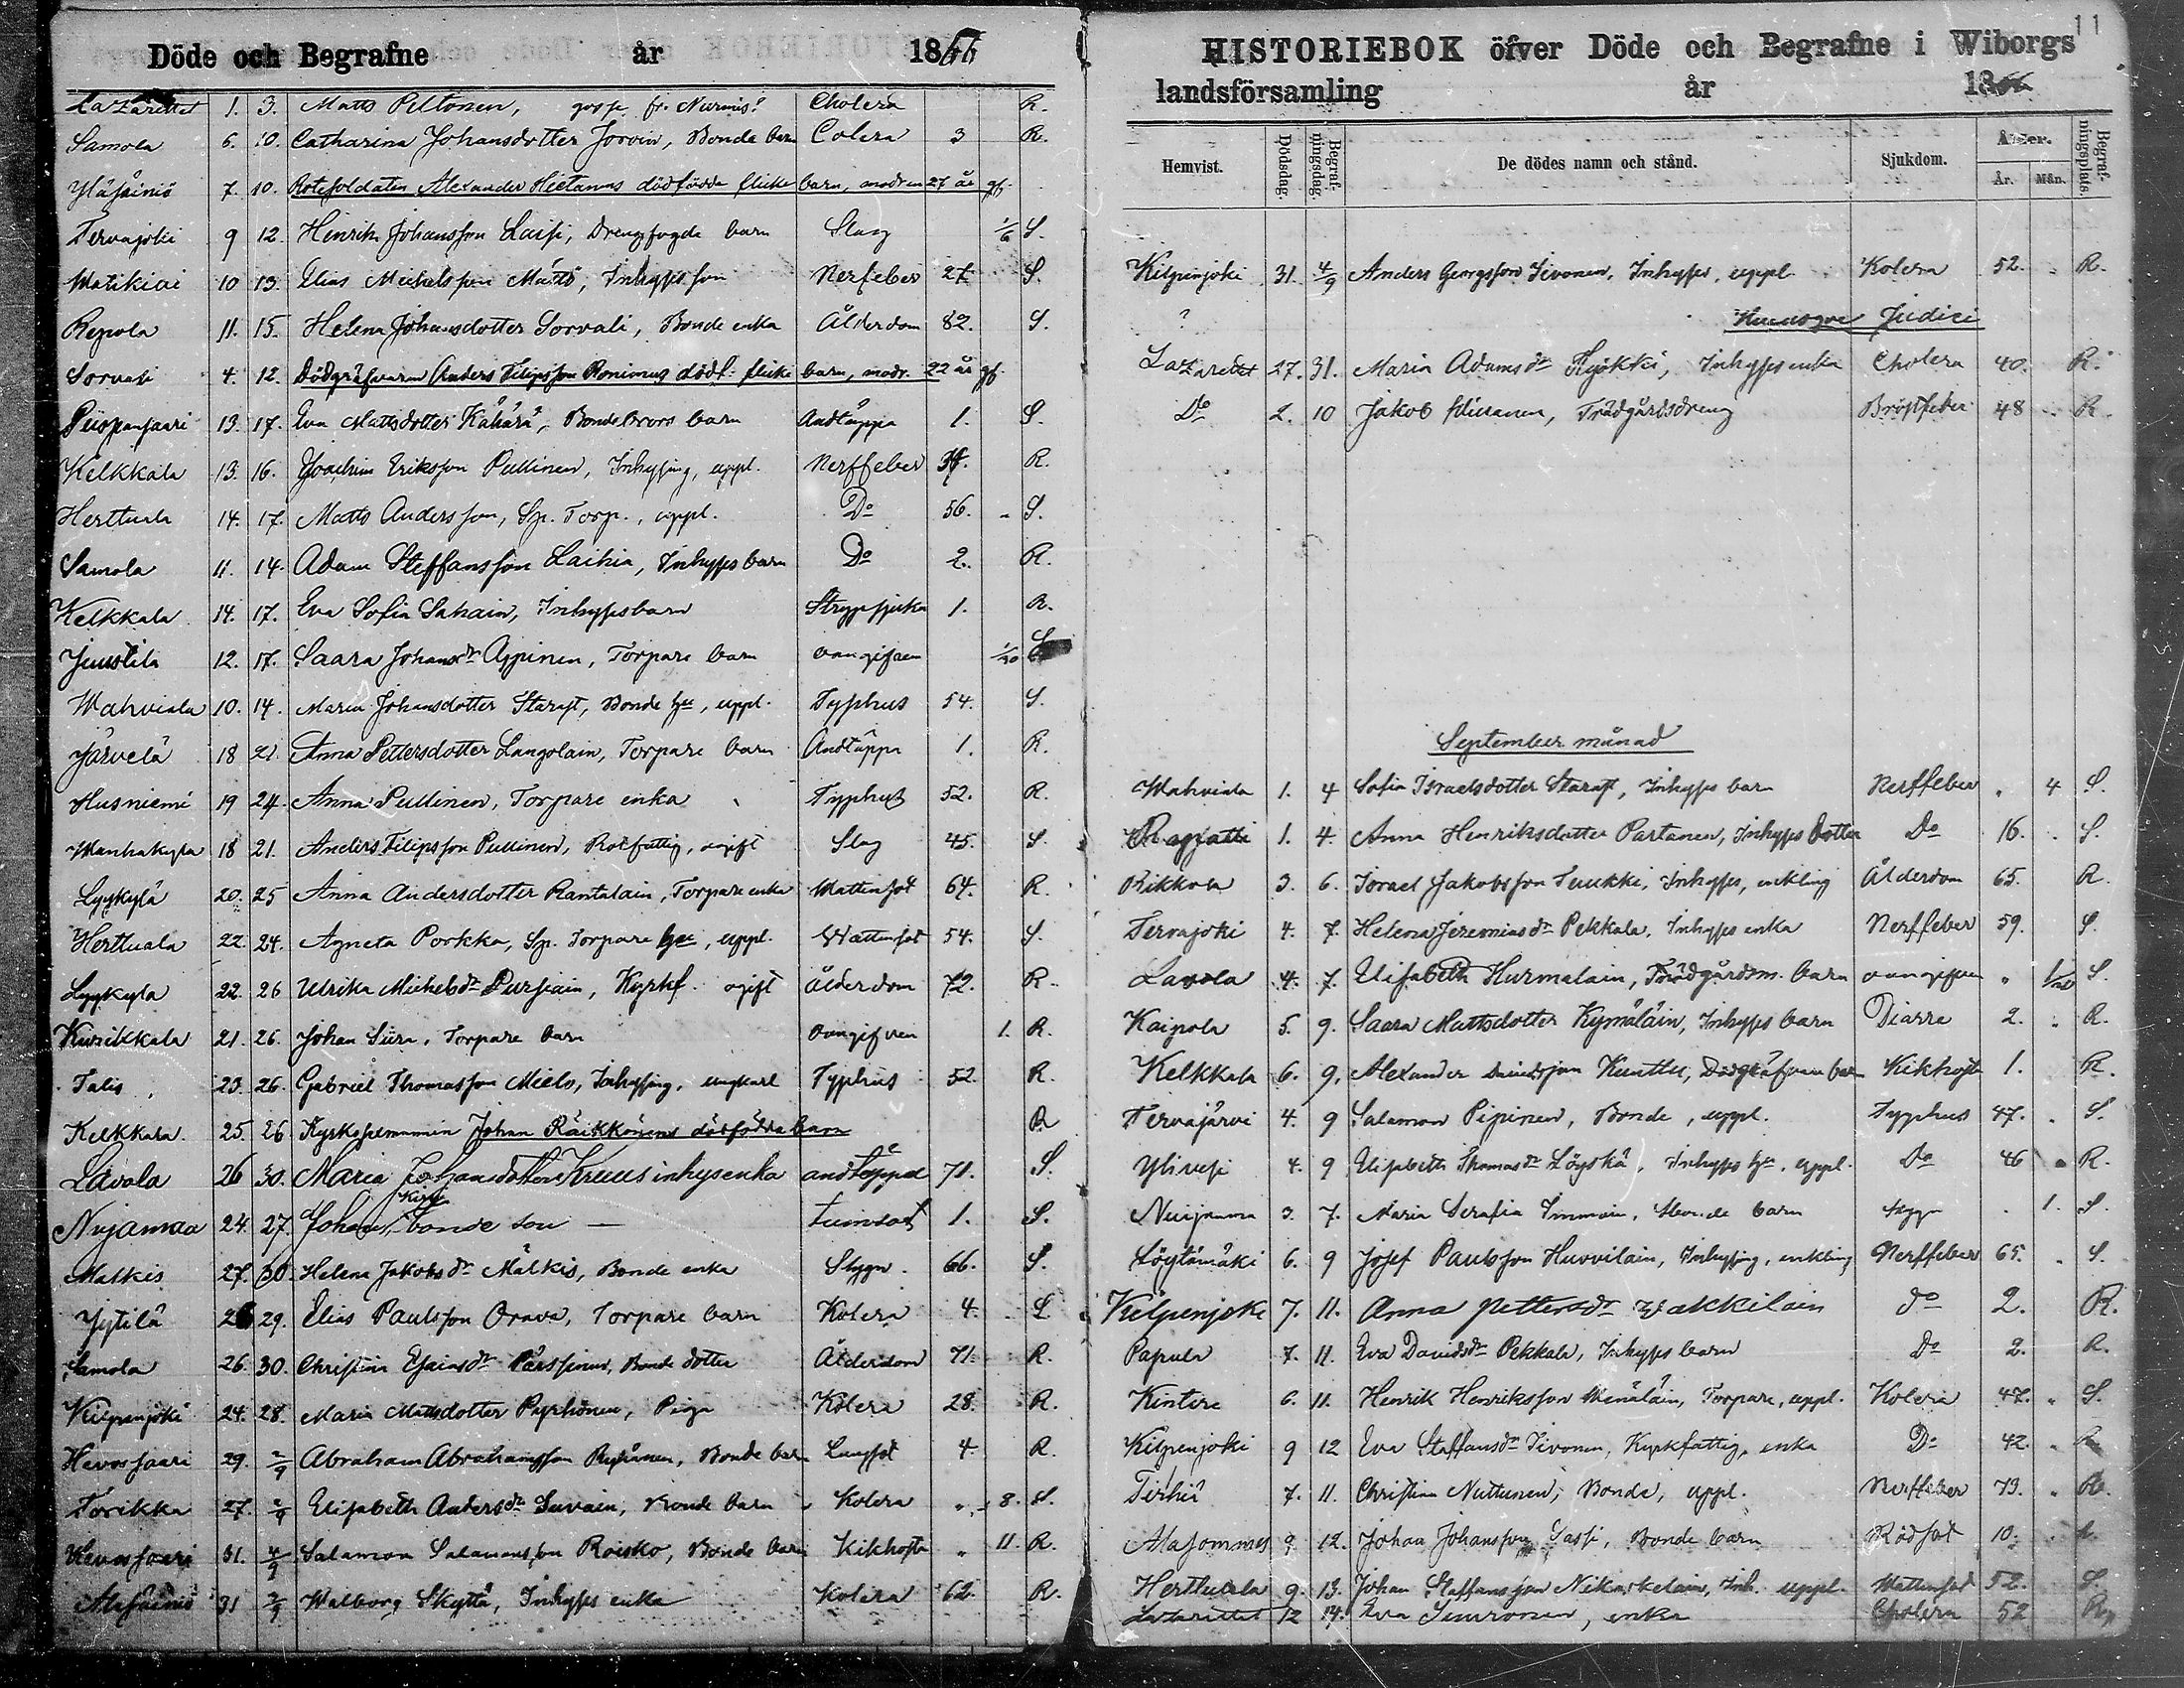 Döde och Begrafne år 1866
Lazarettet 1. 3. Matts Peltonen, gosse fr. Nurmis? Cholera R.
Samola 6. 10. Catharina Johansdotter Jorvin, Bonde barn Colera 3 R.
Yläsäiniö 7. 10. Rotesoldaten Alexander Hietanens dödfödda flicke barn, modren 27 år gf.
Tervajoki 9 12. Hinrik Johansson Laisi, Drengfogde barn Slag 1/6 S.
10 13. Elias Michelsson Mättö, Inhyses son Nerfeber 27 S.
Repola 11. 15. Helena Johansdotter Sorvali, Bonde enka Ålderdom 82. S.
Sorvali 4. 12. Dödgräfvaren Anders Filipsson Ronimus dödf. flicke barn, modr. 22 år gf.
Piispansaari 13. 17. Eva Mattsdotter Kähärä, Bonde brors barn Andtäppa 1. S.
Kelkkala 13. 16. Joachim Eriksson Pullinen, Inhysing, uppl. Nerffeber R.
Herttuala 14. 17. Matts Andersson, Sp. Torp., uppl. Do 56. " S.
Samola 11. 14. Adam Steffansson Laihia, Inhyses barn Do 2. R.
Kelkkala 14. 17. Eva Sofia Sahain, Inhysesbarn Strypsjuka 1. R.
Juustila 12. 17. Saara Johansdr Appinen, Torpare barn oangifven 1/20
Wahviala 10. 14. Maria Johansdotter Starast, Bonde hu, uppl. Typhus 54. S.
Järvelä 18 21. Anna Pettersdotter Langolain, Torpare barn Andtäppa 1. R.
Husniemi 19 24. Anna Pullinen, Torpare enka Typhus 52. R.
Wanhakyla 18 21. Anders Filipsson Pullinen, Rotfattig, ogift Slag 45. S.
Lyykylä 20. 25 Anna Andersdotter Rantalain, Torpare enka Wattensot 64. R.
Herttuala 22. 24. Agneta Porkka, Sp. Torpare hu, uppl. Wattensot 54. S.
Lyykyla 22. 26 Ulrika Michelsdr Pursiain, Kyrkf. ogift ålderdom 72. R.
Kurikkala 21. 26. Johan Siira, Torpare barn oangifven 1. R.
Talis 23. 26. Gabriel Thomasson Mielo, Inhysing, ungkarl Typhus 52 R.
Kelkkala 25. 26 Johan Räikkönens dödfödda barn R
Lavola 26 30. Maria Johansdotter Kruus inhysenka andtäppa 71. S.
Nujamaa 24. 27. Johan bonde son — 1. S.
Mälkis 27. 30. Helena Jakobsdr Mälkis, Bonde enka Stygn. 66. S.
29. Elias Paulsson Orava, Torpare barn Kolera 4. S
Samola 26. 30. Christina Esaiasdr Pärssinen, Bonde dotter Ålderdom 71. R.
Kilpenjoki 24. 28. Maria Mattsdotter Pyrhönen, Piga Kolera 28. R.
Hevossaari 29. 2/9 Abraham Abrahamsson Bonde barn Lungsot 4 R.
Törikka 27. 2/9 Elisabeth Andersdr Suvain, Bonde barn Kolera " 8. S.
Hevossaari 31. 4/9 Salamon Salamonsson Roisko, Bonde barn Kikhosta " 11. R.
Alasäiniö 31 2/9 Walborg Skyttä, Inhyses enka Kolera 62. R.
11
HISTORIEBOK öfver Döde och Begrafne i Wiborgs
landsförsamling år 1866
Hemvist. Dödsdag. Begrafningsdag. De dödes namn och stånd. Sjukdom. Ålder. År. Mån. Begrafningsplats.
Kilpenjoki 31. 4/9 Anders Georgsson Iivonen, Inhyses, uppl. Kolera 52. " R.
?
Lazarettet 27. 31. Maria Adamsdr Hyökki, Inhyses enka Cholera 40. R.
Do 2. 10 Jakob Trädgårdsdreng Bröstfeber 48 " R.
September månad
Wahviala 1. 4 Sofia Israelsdotter Starast, Inhyses barn Nerffeber " 4 S.
1. 4. Anna Henriksdotter Partanen, Inhyses dotter Do 16. " S.
Rikkola 3. 6. Israel Jakobsson Suukki, Inhyses, enkling Ålderdom 65. R.
Tervajoki 4. 7. Helena Jeremiasdr Pekkala, Inhyses enka Nerffeber 59. S.
Lavola 4. 7. Elisabeth Hurmalain, Trädgårdsm. barn oangifven " S.
Kaipola 5. 9. Saara Mattsdotter Kymäläin, Inhyses barn Diarre 2. " R.
Kelkkala 6. 9. Alexander Davidsson Kunttu, Dödgräfvare barn Kikhosta 1. R.
Tervajärvi 4. 9 Salamon Pipinen, Bonde, uppl. Typhus 47. " S.
Ylivesi 4. 9 Elisabeth Thomasdr Löyskä, Inhyses hu, uppl. Do 46 " R.
Nuijamaa 3. 7. Maria Serafia Immoin, Bonde barn Stygn " 1. S.
Löytömäki 6. 9 Josef Paulsson Huovilain, Inhysing, enkling Nerffeber 65. " S.
Kilpenjoki 7. 11. Anna Pettersdr Wakkilain do 2. R.
Papula 7. 11. Eva Davidsdr Pekkala, Inhyses barn Do 2. R.
Kintere 6. 11. Henrik Henriksson Wenäläin, Torpare, uppl. Kolera 47. " S.
Kilpenjoki 9 12 Eva Staffansdr Iivonen, Kyrkfattig, enka Do 42. " R
Tirhiä 7. 11. Christina Nuttunen, Bonde, uppl. Nerffeber 73. "
Alasommes 9 12. Johan Johansson Sassi, Bonde barn Rödsot 10.
Herttuala 9. 13. Johan Staffansson Nikaskelain, Inh. uppl. Wattensot 52. S.
Lazarettet 12 14. Eva Simronen, enka Cholera 52 R.